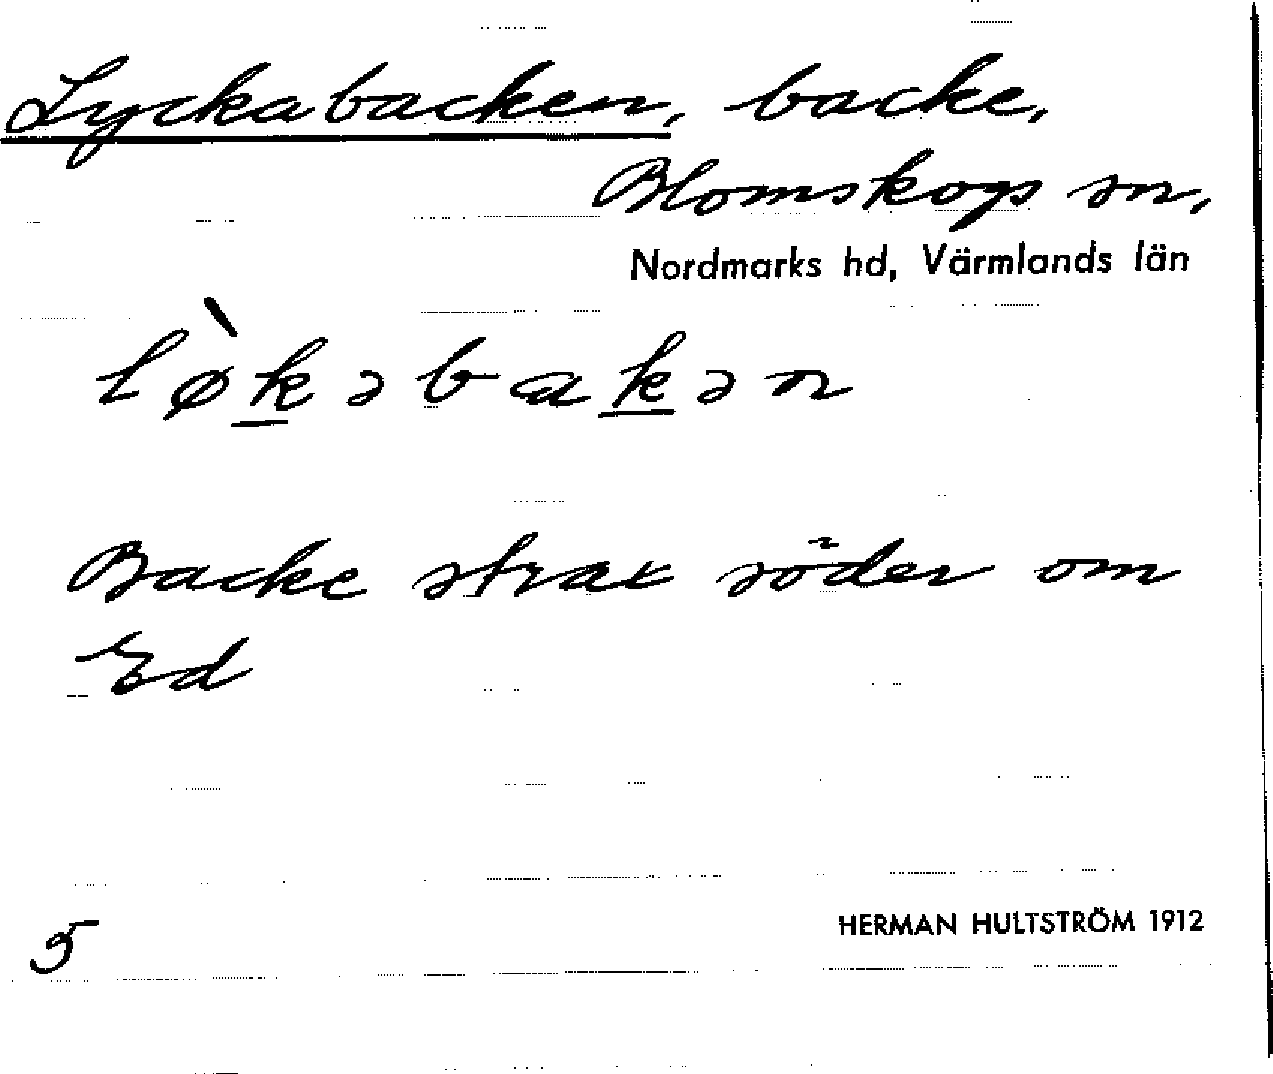 Lyckabacken, backe,
Blomskogs sn,
Nordmarks hd, Värmlands län
lø̀k̲əbak̲ən
Backe strax söder om
Ed
5
HERMAN HULTSTRÖM 1912